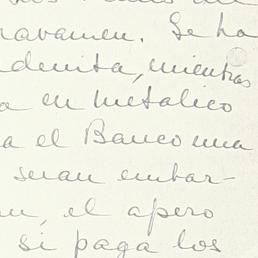 ravamen. Se ha
denita, mientras
en metalico
a el Banco una
seran embar-
, el apero
si paga los